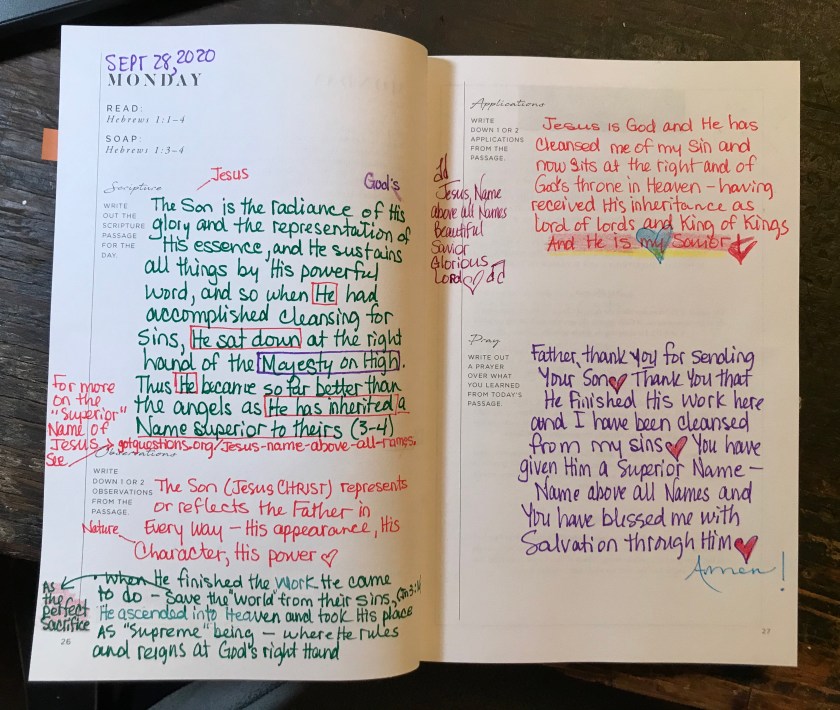 SEPT 28, 2020
MONDAY
READ:
Hebrews 1:1-4
SOAP:
Hebrews 1:3-4
Jesus
God's
Scripture
WRITE
OUT THE
SCRIPTURE
PASSAGE
FOR THE
DAY.
The Son is the radiance of His
glory and the representation of
His essence, and He sustains
all things by His powerful
word, and so when He had
accomplished cleansing for
sins, He sat down at the right
hand of the Majesty on High.
Thus He became so far better than
the angels as He has inherited a
Name superior to theirs (3-4)
For more
on the
"Superior"
Name of
Jesus
See
gotquestions.org/Jesus-name-above-all-names.
Observations
WRITE
DOWN 1 OR 2
OBSERVATIONS
FROM THE
PASSAGE.
The Son (Jesus CHRIST) represents
or reflects the Father in
Nature
Every way – His appearance, His
Character, His power
As
the
perfect
Sacrifice
• When He finished the work He came
to do – Save the "world" from their sins, (Jn 3:16)
He ascended into Heaven and took His place
AS "Supreme" being – where He rules
and reigns at God's right Hand
26
Jesus, Name
above all Names
Beautiful
Savior
Glorious
Lord
Applications
WRITE
DOWN 1 OR 2
APPLICATIONS
FROM THE
PASSAGE.
Jesus is God and He has
cleansed me of my Sin and
now sits at the right and of
God's throne in Heaven – having
received His inheritance as
Lord of lords and King of Kings
And He is my Savior
Pray
WRITE OUT
A PRAYER
OVER WHAT
YOU LEARNED
FROM TODAY'S
PASSAGE.
Father, thank you for sending
Your Son Thank You that
He finished His Work here
and I have been cleansed
from my sins You have
given Him a Superior Name –
Name above all Names and
You have blessed me with
Salvation through Him
Amen!
27